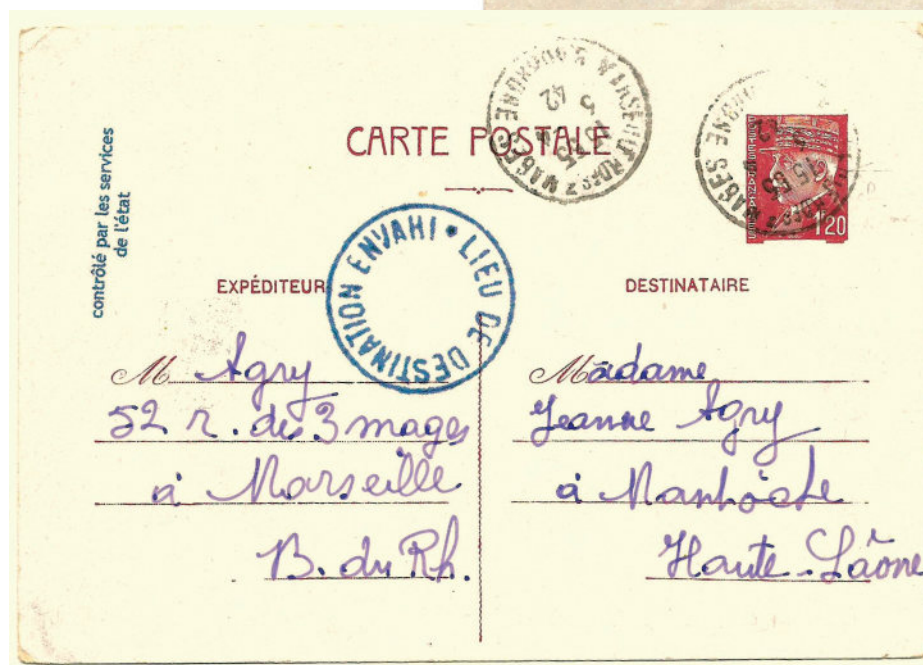 contrôlé par les services
de l'état
CARTE POSTALE
MARSEILLE
R. DES 3 MAGES
15 35
5
42
R. DES 3 MAGES
15 35
1f20
LIEU DE DESTINATION ENVAHI
EXPÉDITEUR
M Agry
52 r. des 3 mages
à Marseille
B. du Rh.
DESTINATAIRE
Madame
Jeanne Agry
à Mantoche
Haute-Sâone